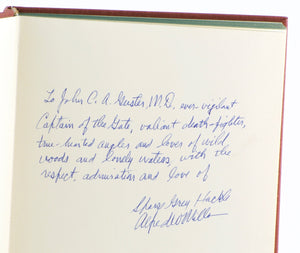 To John C. A. Gerster M.D., ever-vigilant
Captain of the Gate, valiant death-fighter,
true-hearted angler and lover of wild
woods and lonely waters with the
respect, admiration and love of
Sparse Grey Hackle
Alfred W Miller